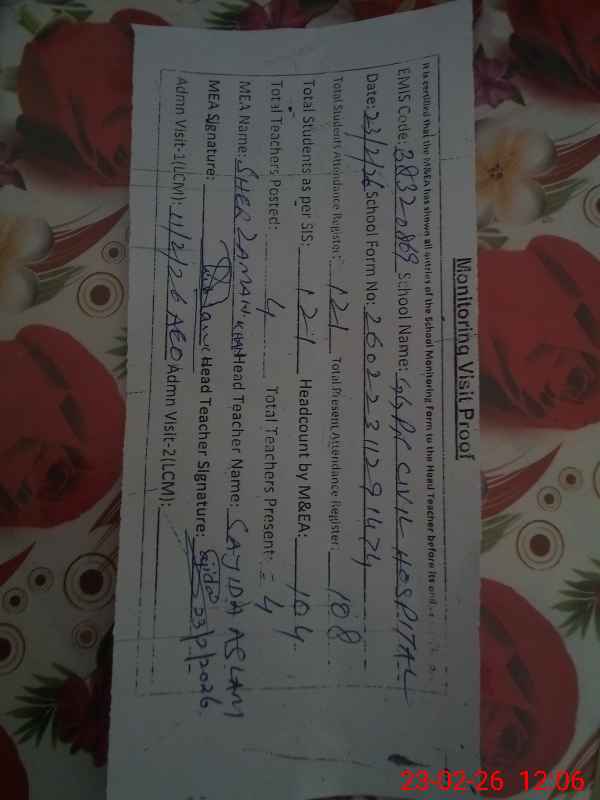 Monitoring Visit Proof
It is certified that the M&EA has shown all entries of the School Monitoring Form to the Head Teacher before its
EMIS Code: 38320869 School Name: GGPS CIVIL HOSPITAL
Date: 23/2/26 School Form No: 26022311291474
Total Students Attendance Register: 121 Total Present Attendance Register: 108
Total Students as per SIS: 121 Headcount by M&EA: 104
Total Teachers Posted: 4 Total Teachers Present: = 4
MEA Name: SHER ZAMAN KHAN Head Teacher Name: SAJIDA ASLAM
MEA Signature: Head Teacher Signature: Sajida 23/2/2026
Admn Visit-1(LCM): 11/2/26 AEO Admn Visit-2(LCM):
23-02-26 12:06